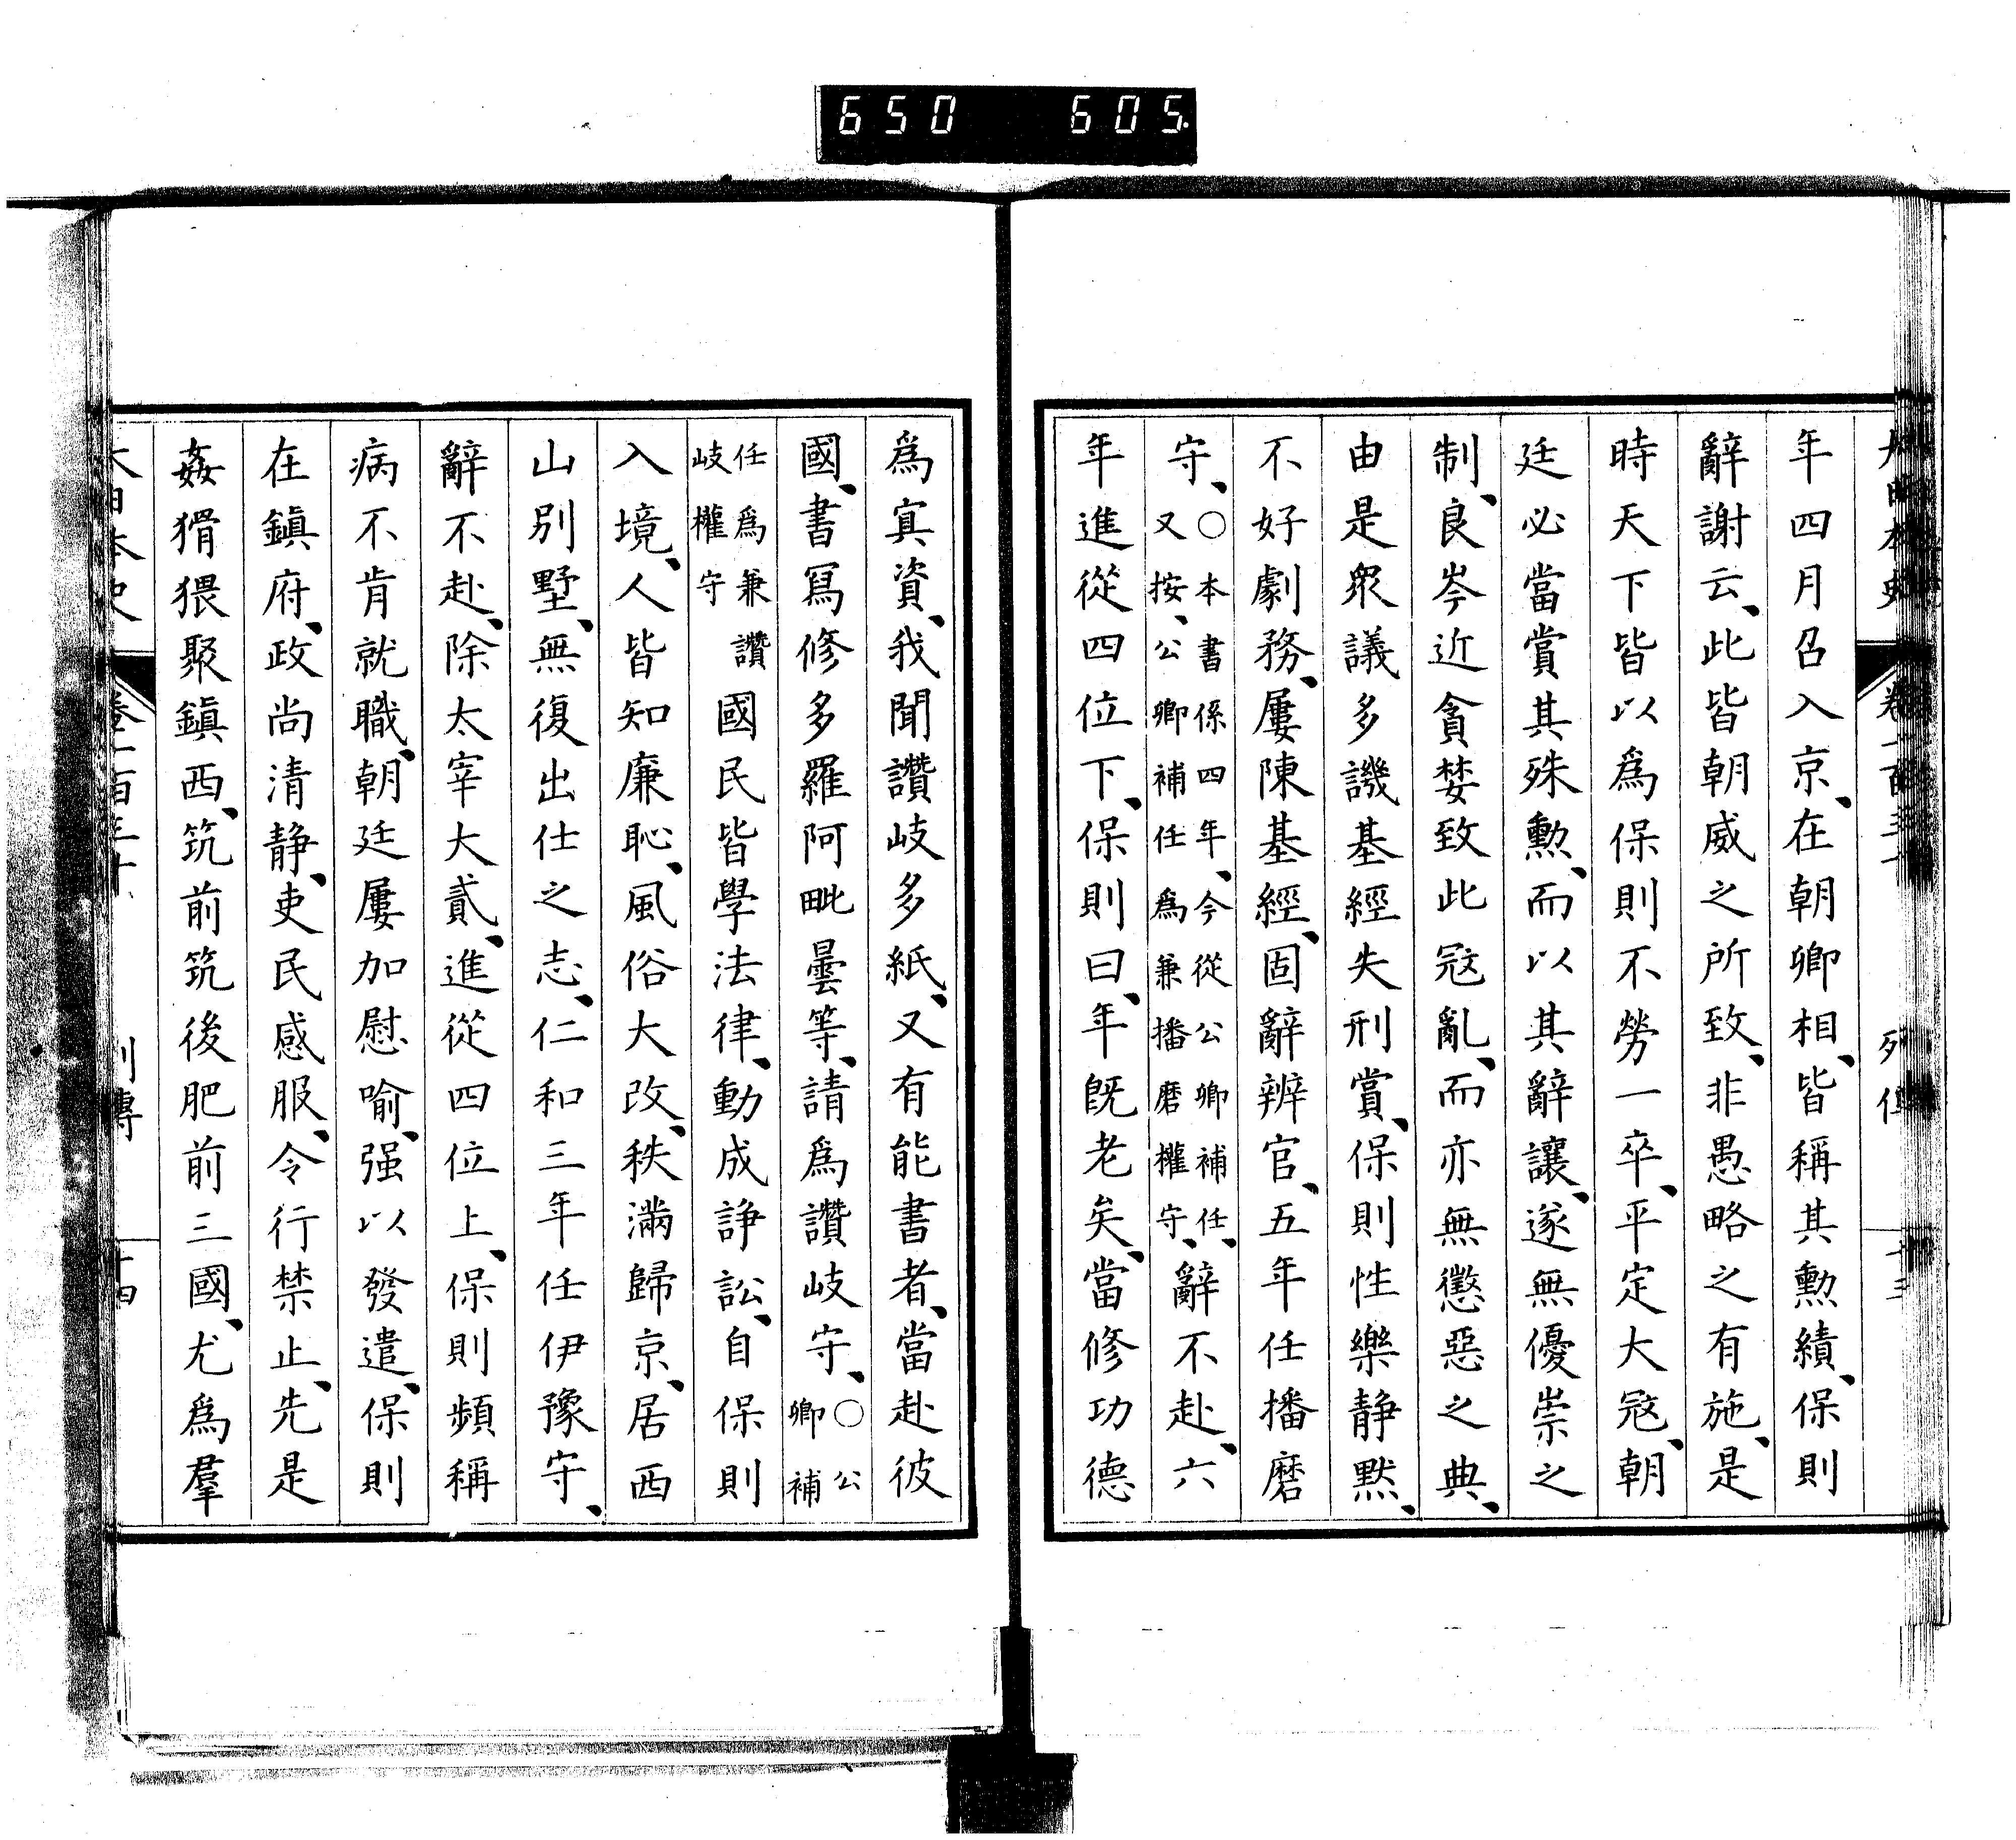 650 605
年四月召入京、在朝卿相、皆稱其勲績、保則
辭謝云、此皆朝威之所致、非愚略之有施、是
時天下皆以爲保則不勞一卒、平定大冦、朝
廷必當賞其殊勲、而以其辭讓、遂無優崇之
制、良岑近貪婪致此冦亂、而亦無懲惡之典、
由是衆議多譏基經失刑賞、保則性樂静黙、
不好劇務、屢陳基經、固辭辨官、五年任播磨
守、〇本書係四年、今從公卿補任、又按、公卿補任爲兼播磨權守、辭不赴、六
年進從四位下、保則曰、年既老矣、當修功德
爲寘資、我聞讚岐多紙、又有能書者、當赴彼
國、書寫修多羅阿毗曇等、請爲讚岐守、〇公卿補
任爲兼讚岐權守國民皆學法律、動成諍訟、自保則
入境、人皆知廉恥、風俗大改、秩滿歸京、居西
山別墅、無復出仕之志、仁和三年任伊豫守、
辭不赴、除太宰大貳、進從四位上、保則頻稱
病不肯就職、朝廷屢加慰喻、强以發遣、保則
在鎮府、政尚清静、吏民感服、令行禁止、先是
姦猾猥聚鎮西、筑前筑後肥前三國、尤爲羣